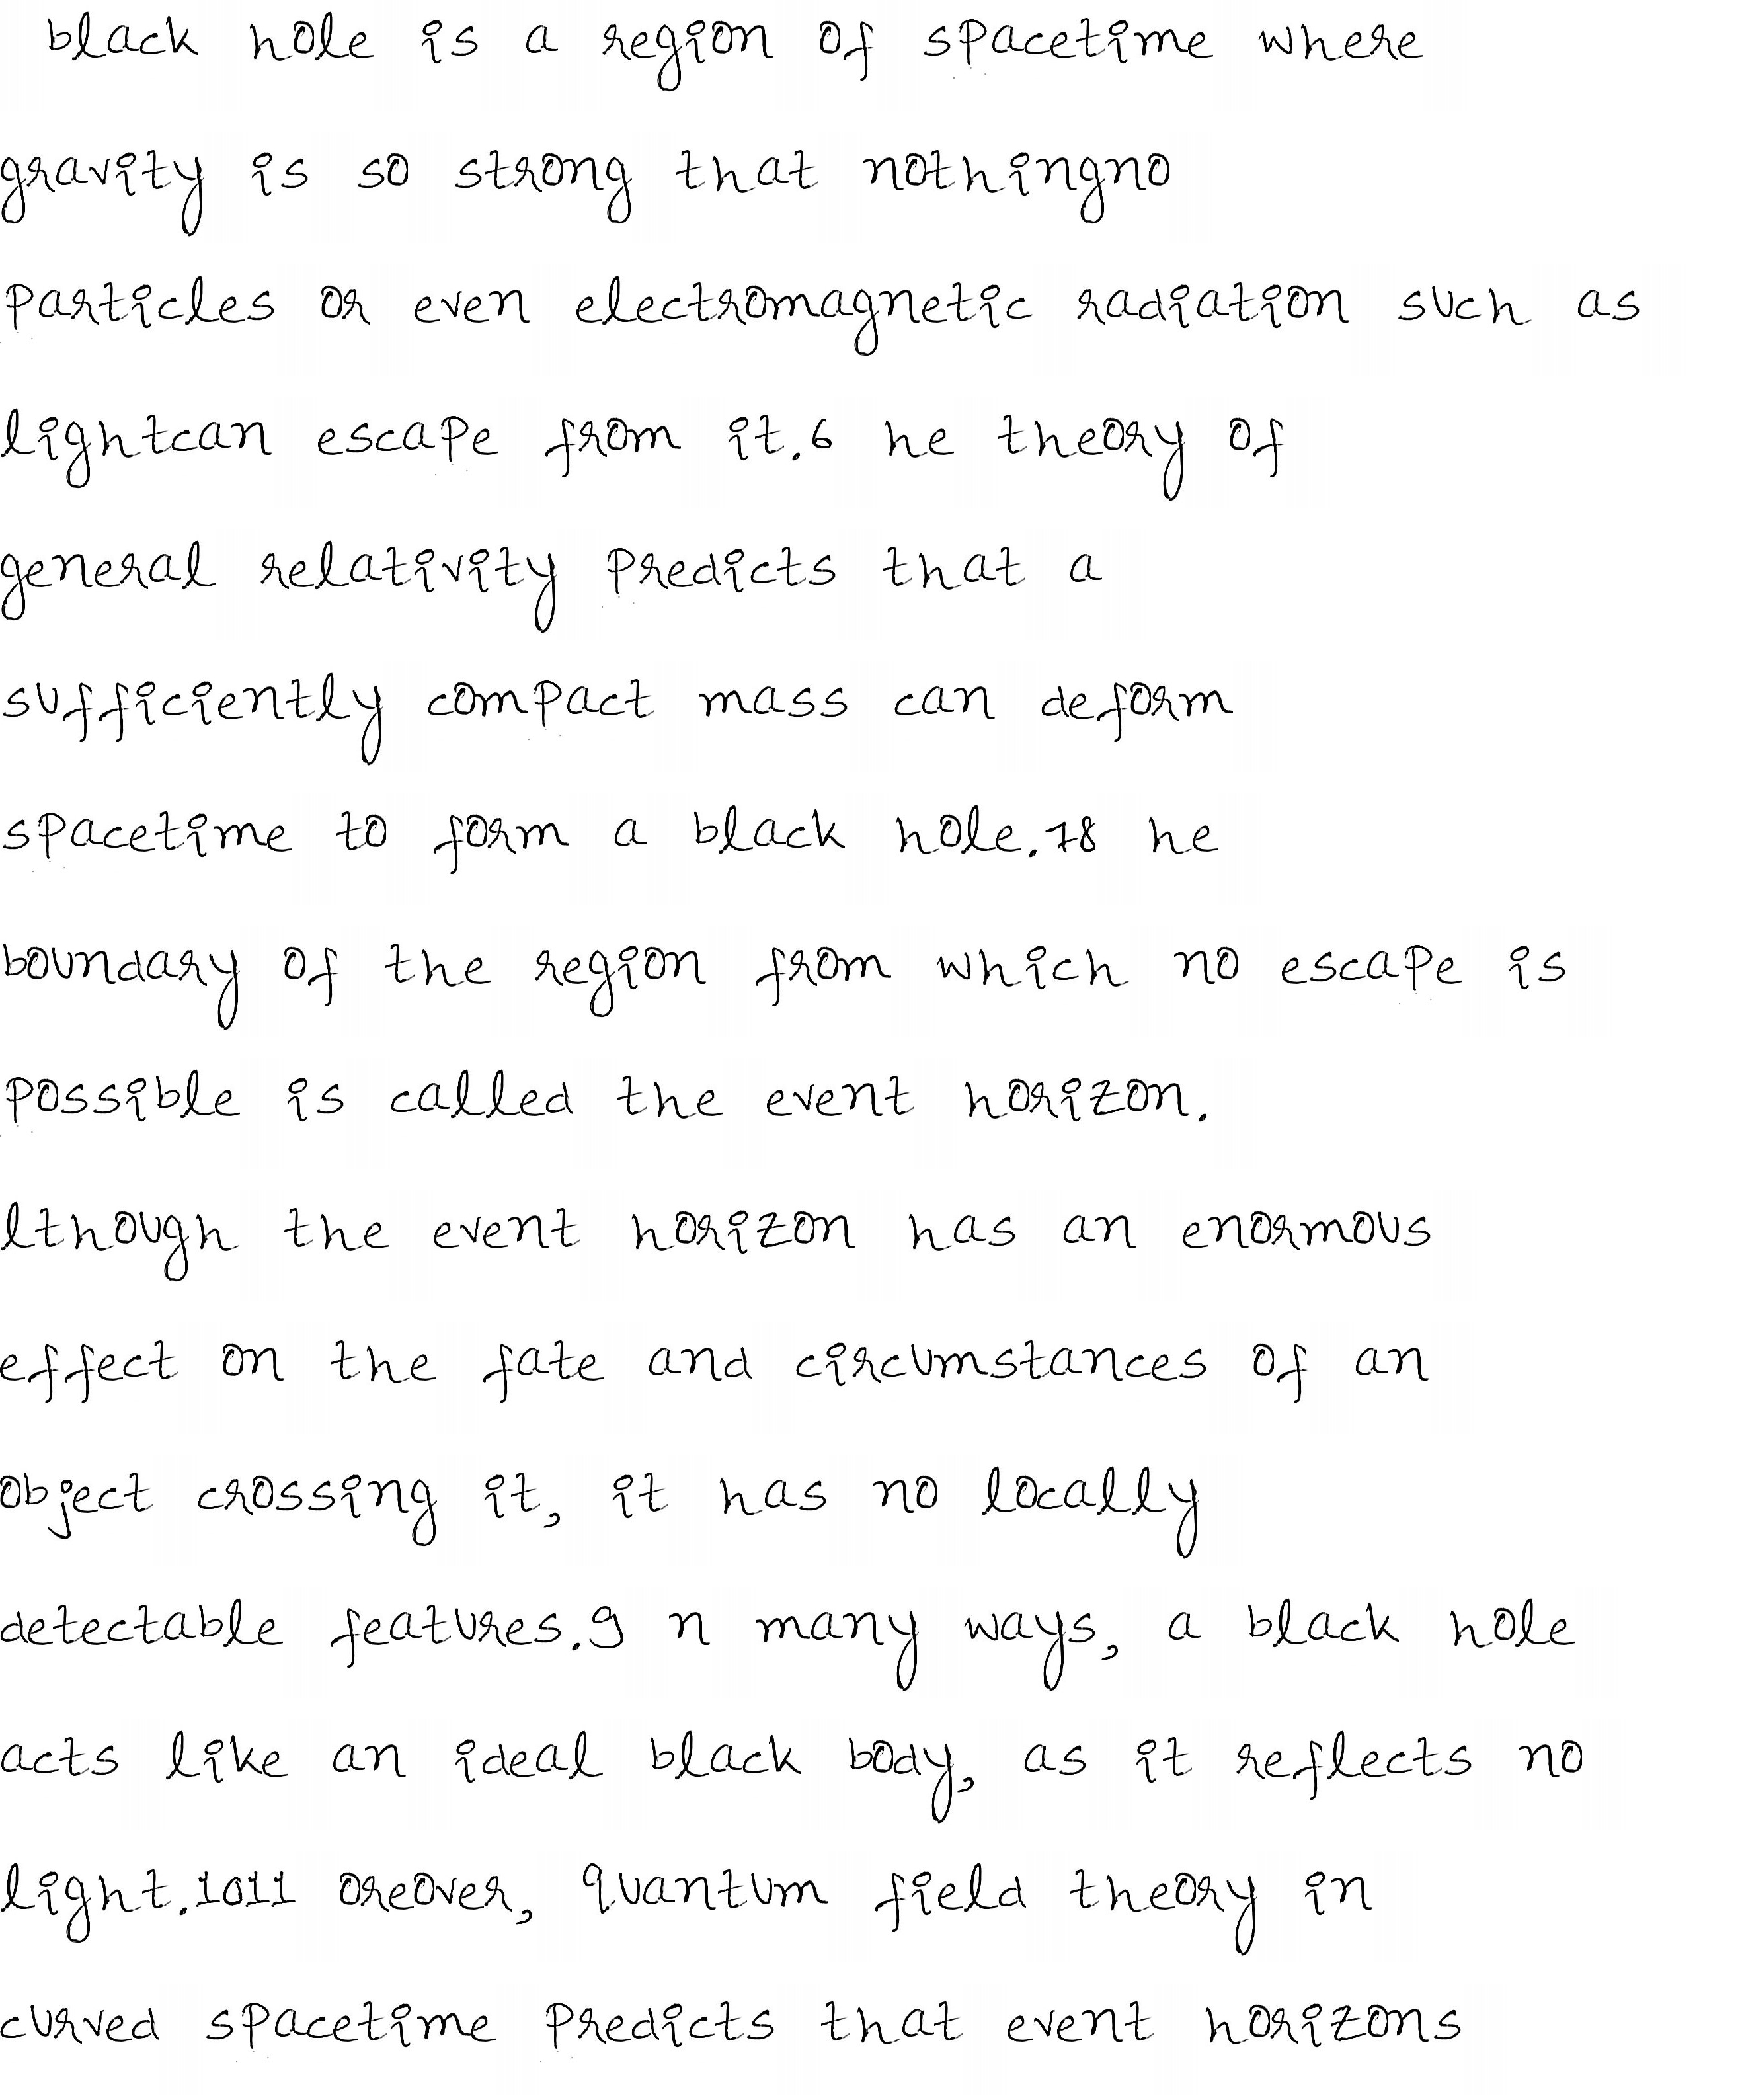 black hole is a region of spacetime where
gravity is so strong that nothingno
particles or even electromagnetic radiation such as
lightcan escape from it.6 he theory of
general relativity predicts that a
sufficiently compact mass can deform
spacetime to form a black hole.78 he
boundary of the region from which no escape is
possible is called the event horizon.
lthough the event horizon has an enormous
effect on the fate and circumstances of an
object crossing it, it has no locally
detectable features.9 n many ways, a black hole
acts like an ideal black body, as it reflects no
light.1011 oreover, quantum field theory in
curved spacetime predicts that event horizons